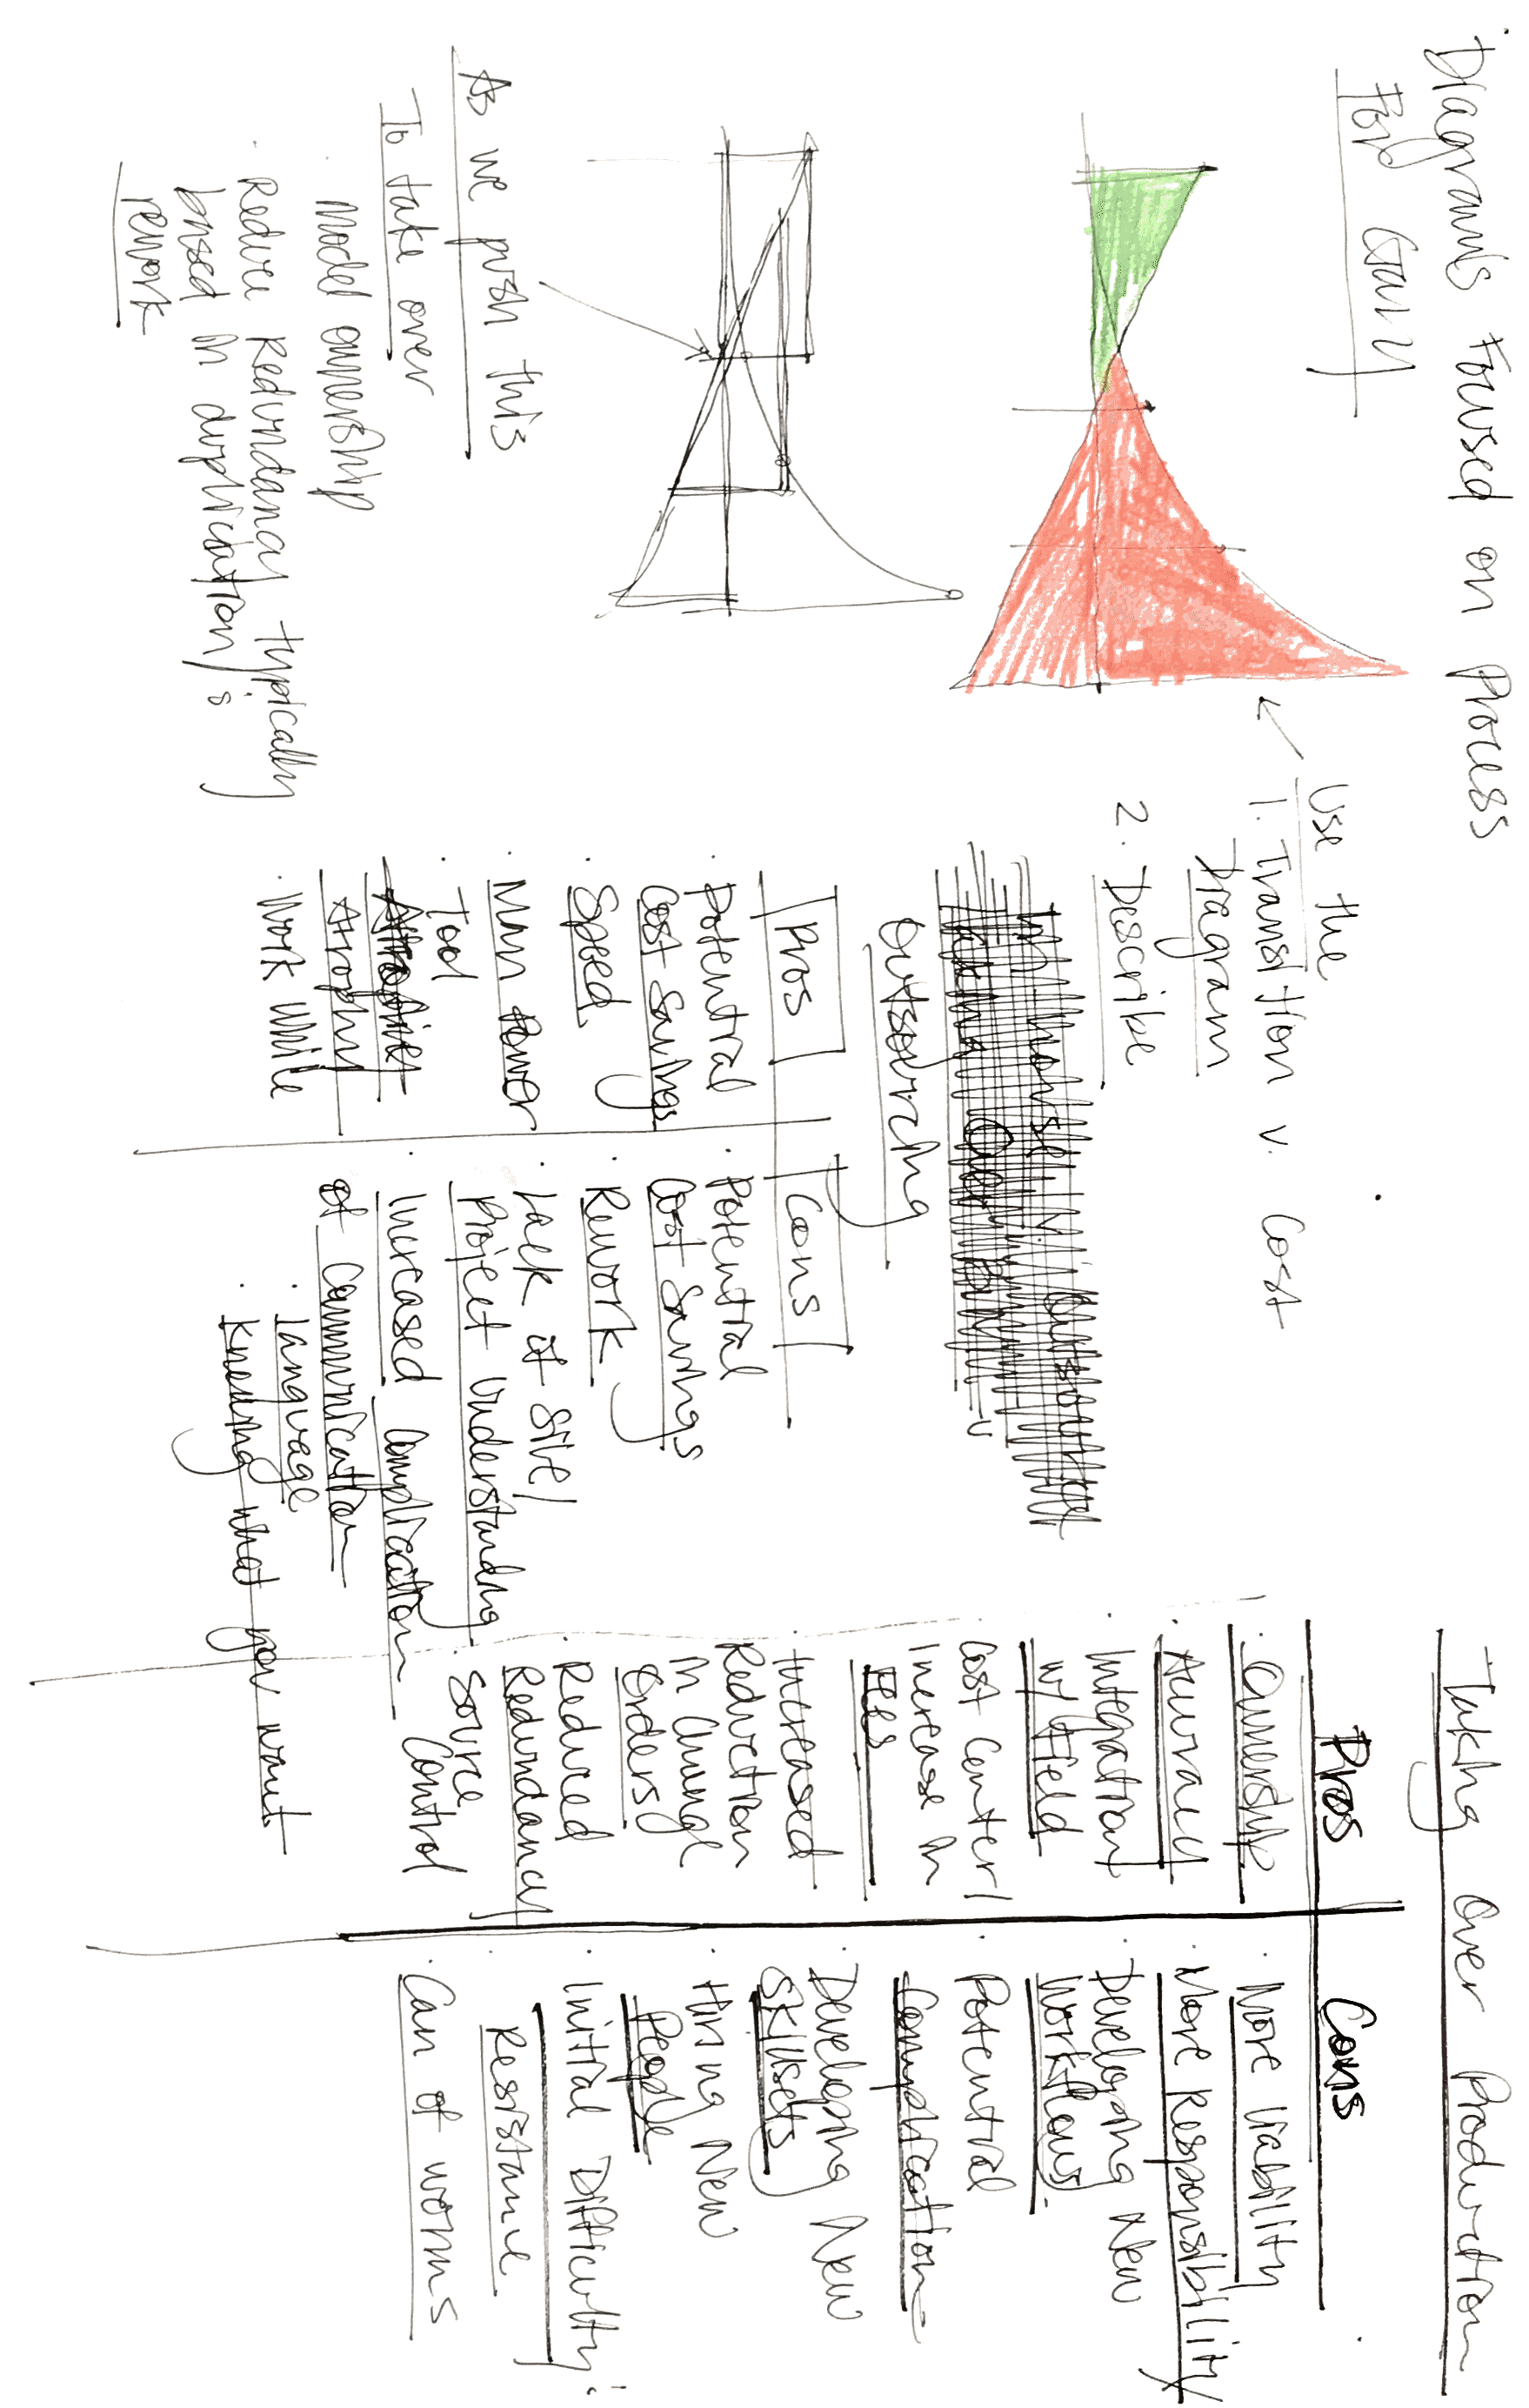 Diagrams Focused on Process
For Gary
Use the
1. Transition v. Cost
Diagram
2. Describe
As we push this
To take over
· Model ownership
· Reduce Redundancy typically
based in duplication /
rework
Outsourcing
Pros
Cons
· Potential
Cost Savings
· Speed
· Man Power
· Tool
Atrophy
· Work While
· Potential
Cost Savings
· Rework
· Lack of Site /
Project Understanding
· Increased Complication
of Communication
· Language
· Knowing what you want
Taking Over Production
Pros
Cons
· Ownership
· Accuracy
· Integration
w/ Field
· Cost Center /
Increase in
Fees
· Increased
Reduction
in Change
Orders
· Reduced
Redundancy
· Source
Control
· More Liability
· More Responsibility
· Developing New
Workflows
· Potential
Complication
· Developing New
Skillsets
· Hiring New
People
· Initial Difficulty
· Resistance
· Can of worms